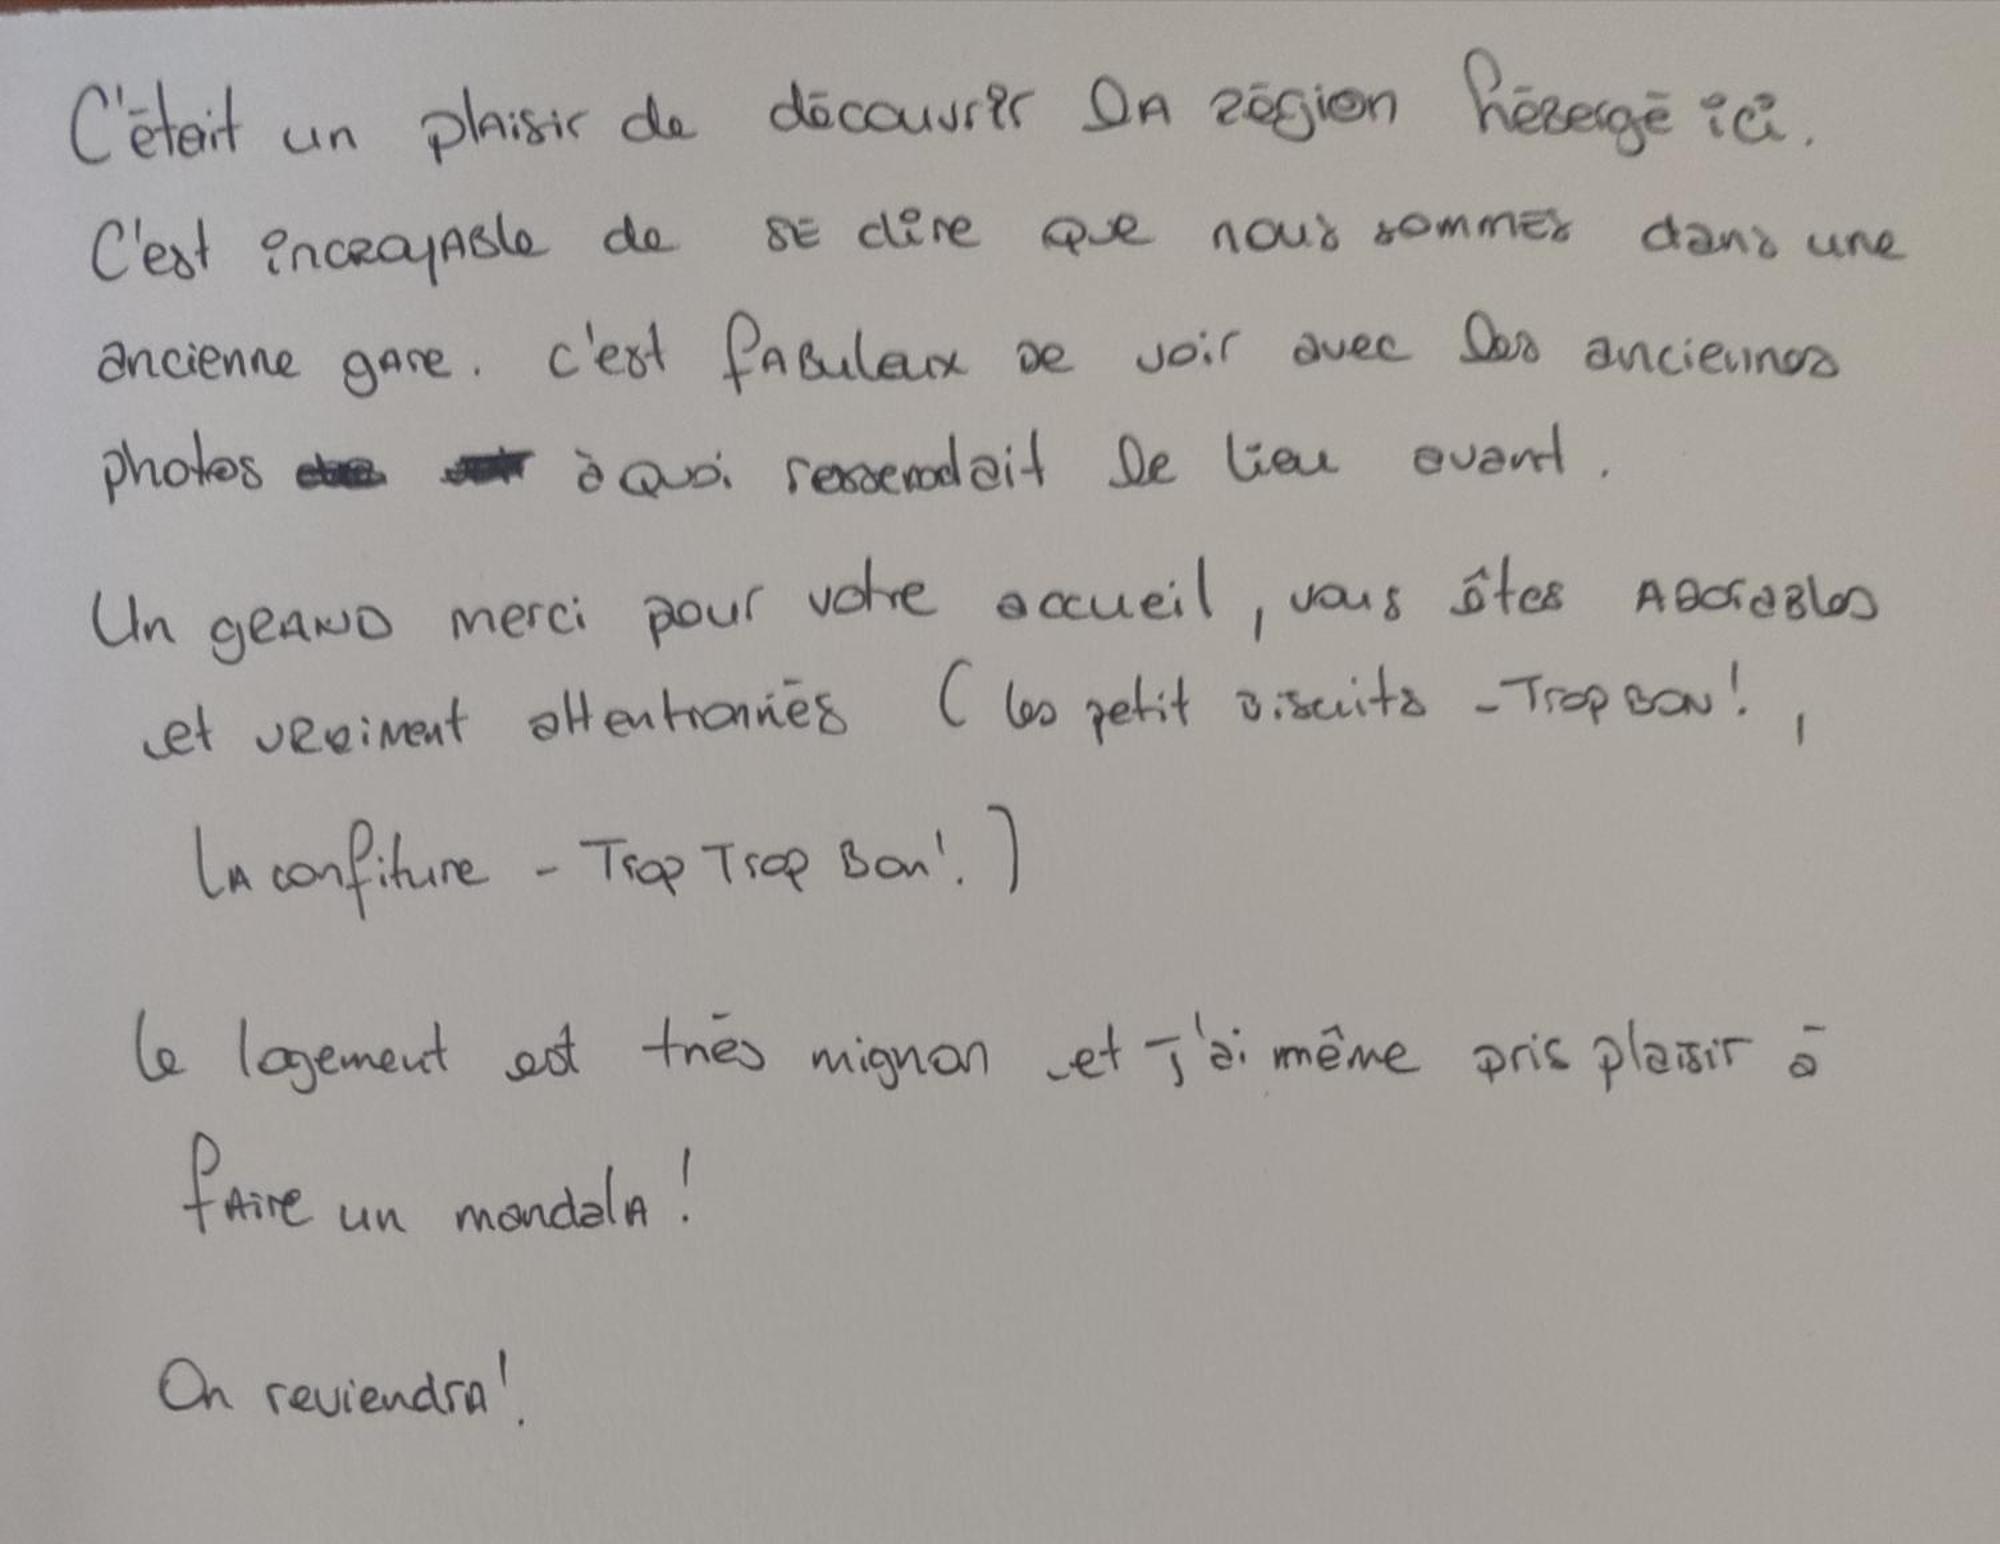 C'était un plaisir de découvrir la région hébergé ici.
C'est incroyable de se dire que nous sommes dans une
ancienne gare. c'est fabuleux de voir avec les anciennes
photos à quoi ressemblait le lieu avant.
Un grand merci pour votre accueil, vous êtes adorables
et vraiment attentionnés (les petit biscuits - Trop bon!,
la confiture - Trop Trop Bon!)
le logement est très mignon et j'ai même pris plaisir à
faire un mandala!
On reviendra!